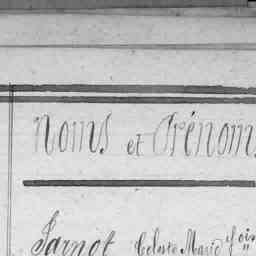 Noms et Prénoms
Jarnot Celeste Marie